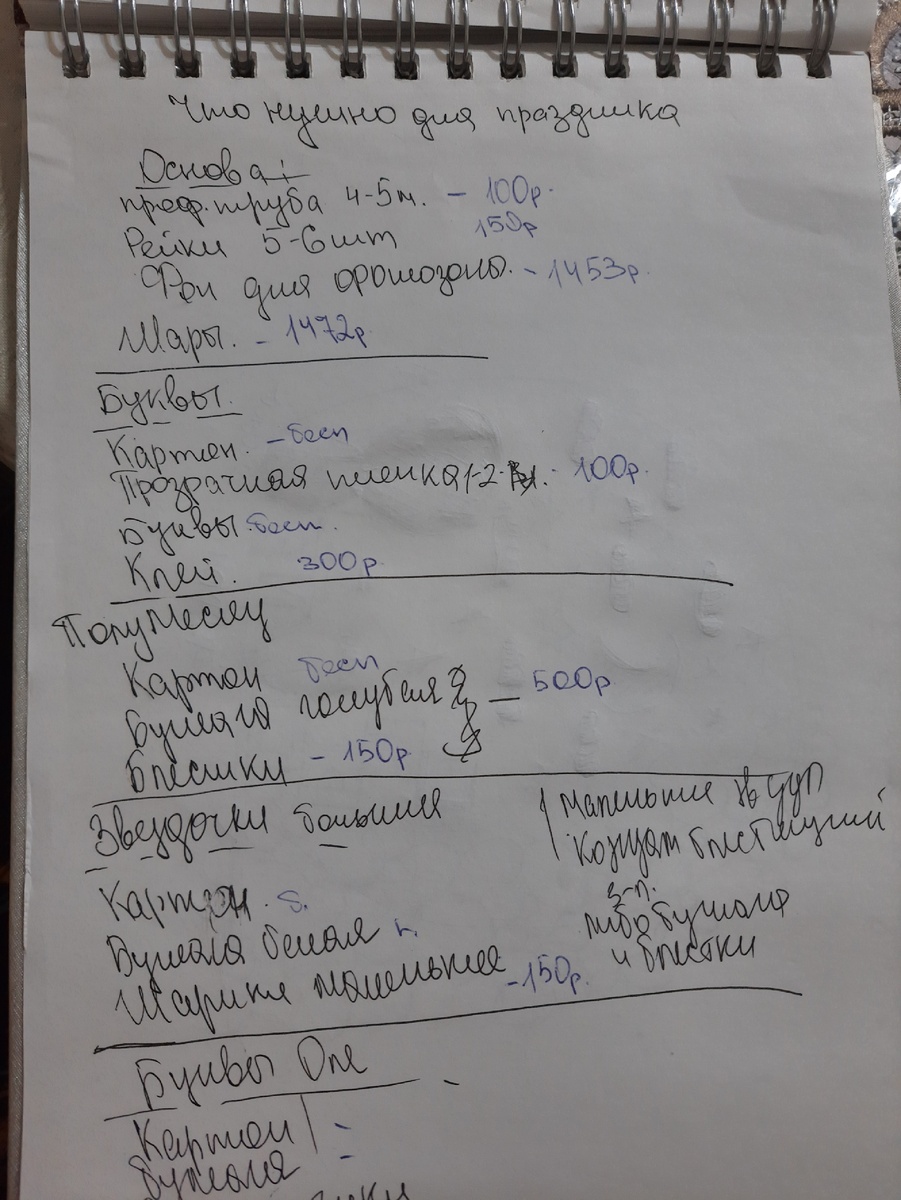 Что нужно для праздника
Основа:
проф. труба 4-5м. - 100р.
Рейки 5-6шт 150р
Фон для фотозоны. - 1453р.
Шары. - 1472р
Буквы.
Картон. - бесп
Прозрачная пленка 1-2 . 100р.
Буквы бесп.
Клей. 300р
Полумесяц
Картон бесп
Бумага голубая — 500р
Блестки - 150р.
Звездочки большие
Картон. б.
Бумага белая
Шарики маленькие - 150р.
Маленькие
Картон блестящий
либо бумага
и блестки
Буквы One
Картон -
Бумага -